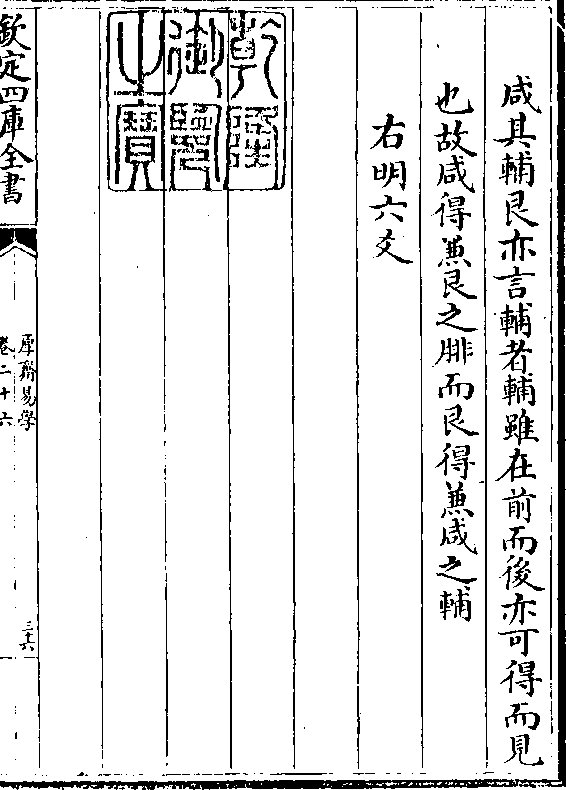 咸其輔艮亦言輔者輔雖在前而後亦可得而見
也故咸得兼艮之腓而艮得兼咸之輔
右明六爻
乾隆
御覽
之寶
欽定四庫全書
厚齋易學
卷二十六
三六